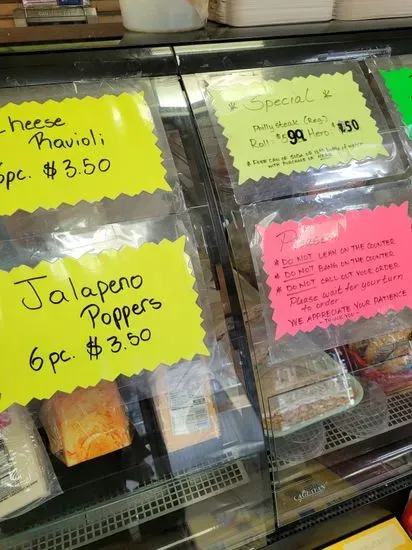 Cheese
Ravioli
6pc. $3.50
Jalapeno
Poppers
6 pc. $3.50
* Special *
Philly Steak (Reg)
Roll: $5.99 Hero:
* FREE CAN OF SODA OR
WITH PURCHASE OF HERO
Please
* DO NOT LEAN ON THE COUNTER
* DO NOT BANG ON THE COUNTER
* DO NOT CALL OUT YOUR ORDER
Please wait for your turn
to order
WE APPRECIATE YOUR PATIENCE
THANK YOU